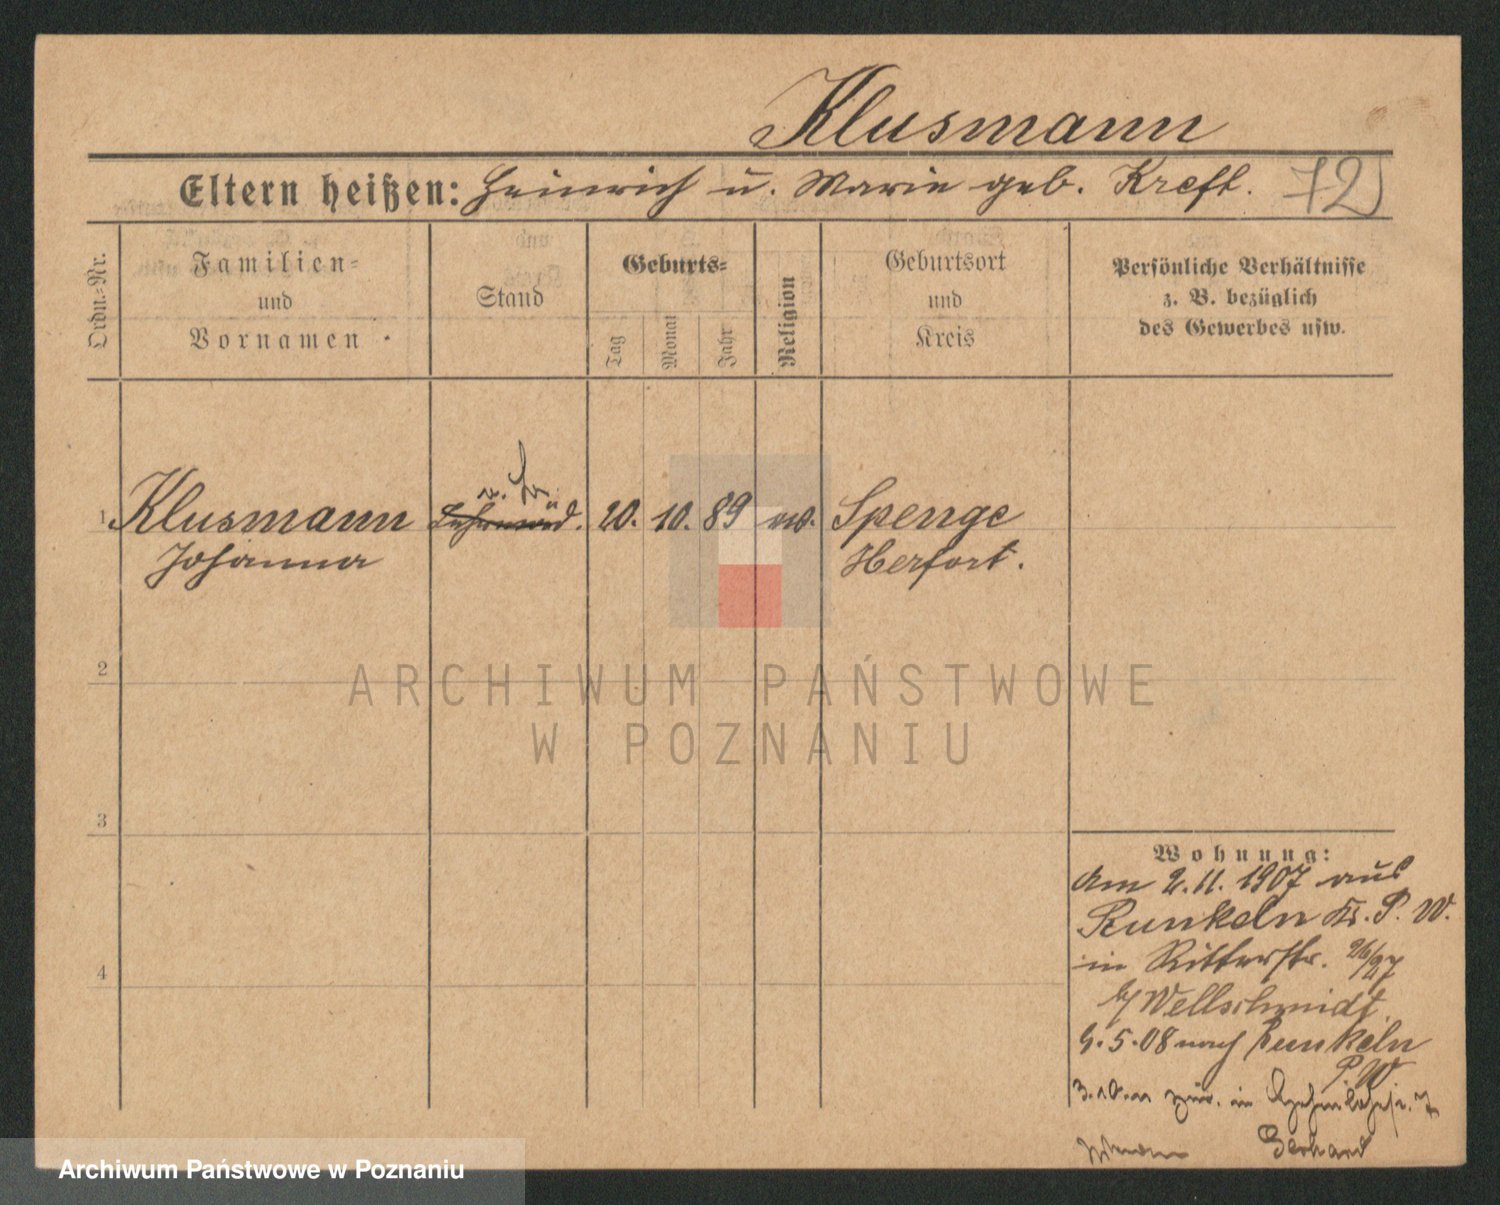 Klusmann
Eltern heißen: Heinrich u. Marie geb. Kreft. 72
Ordn.-Nr.
Familien-
und
Vornamen
Stand
Geburts-
Tag
Monat
Jahr
Religion
Geburtsort
und
Kreis
Persönliche Verhältnisse
z. B. bezüglich
des Gewerbes usw.
1 Klusmann 20. 10. 89 Spenge
Johanna Herfort.
2
ARCHIWUM PAŃSTWOWE
W POZNANIU
3
Wohnung:
Am 2.11.1907 aus
Runkeln Kr. P. W.
in Ritterstr. 26/27
b/ Wellschmidt.
9.5.08 nach Runkeln
P. W
3.10.11 in
Gerhard
4
Archiwum Państwowe w Poznaniu